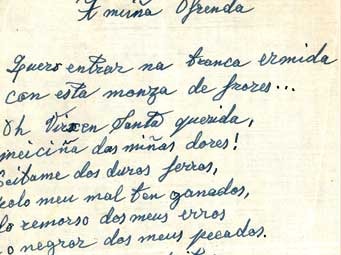 A miña Ofrenda
Quero entrar na branca ermida
con esta monza de frores...
Oh Virxen Santa querida,
meiciña das miñas dores!
ceitame dos duros ferros,
polo meu mal ten ganados,
do remorso dos meus erros
o negror dos meus pecados.